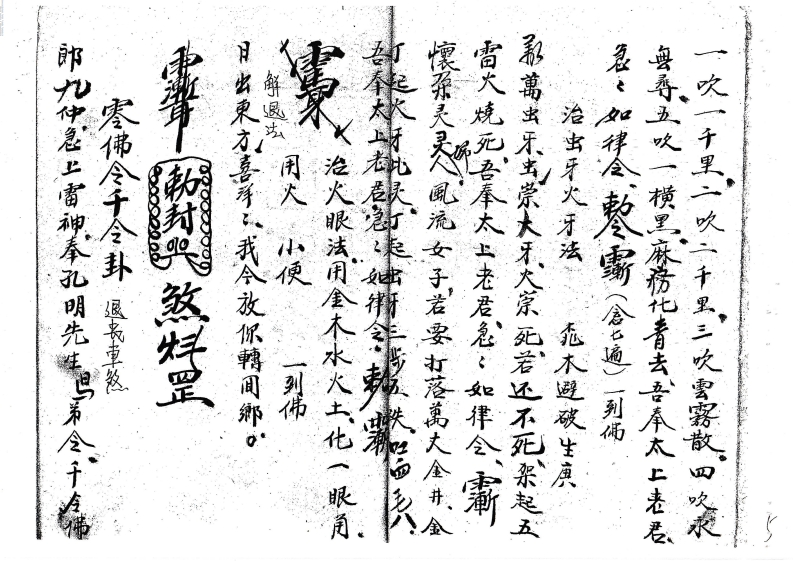 一吹一千里。二吹二千里。三吹雲霧散。四吹水
無尋。五吹一橫黑。麻痨化青去。吾奉太上老君。
急〻如律令。敕令 (念七遍) 一到佛
治虫牙火牙法 木避破生庚
萬虫牙。虫崇大牙。火崇死。若还不死。架起五
雷火燒死。吾奉太上老君。急〻如律令。
懷孕灵灵婦人風流女子。若要打落萬丈金井。金
丁起火牙此灵。丁起出牙三步五跌。吐血毛八
吾奉太上老君。急〻如律令。敕
治火眼法。用金木水火土。化一眼角。
解退法 用火 小便 一到佛
日出東方。喜洋〻。我今放你轉回鄉。
敕封 煞 罡
零佛令千令卦 退喪車煞
郎九仲。急上雷神。奉孔明先生 弟令。千令佛
5